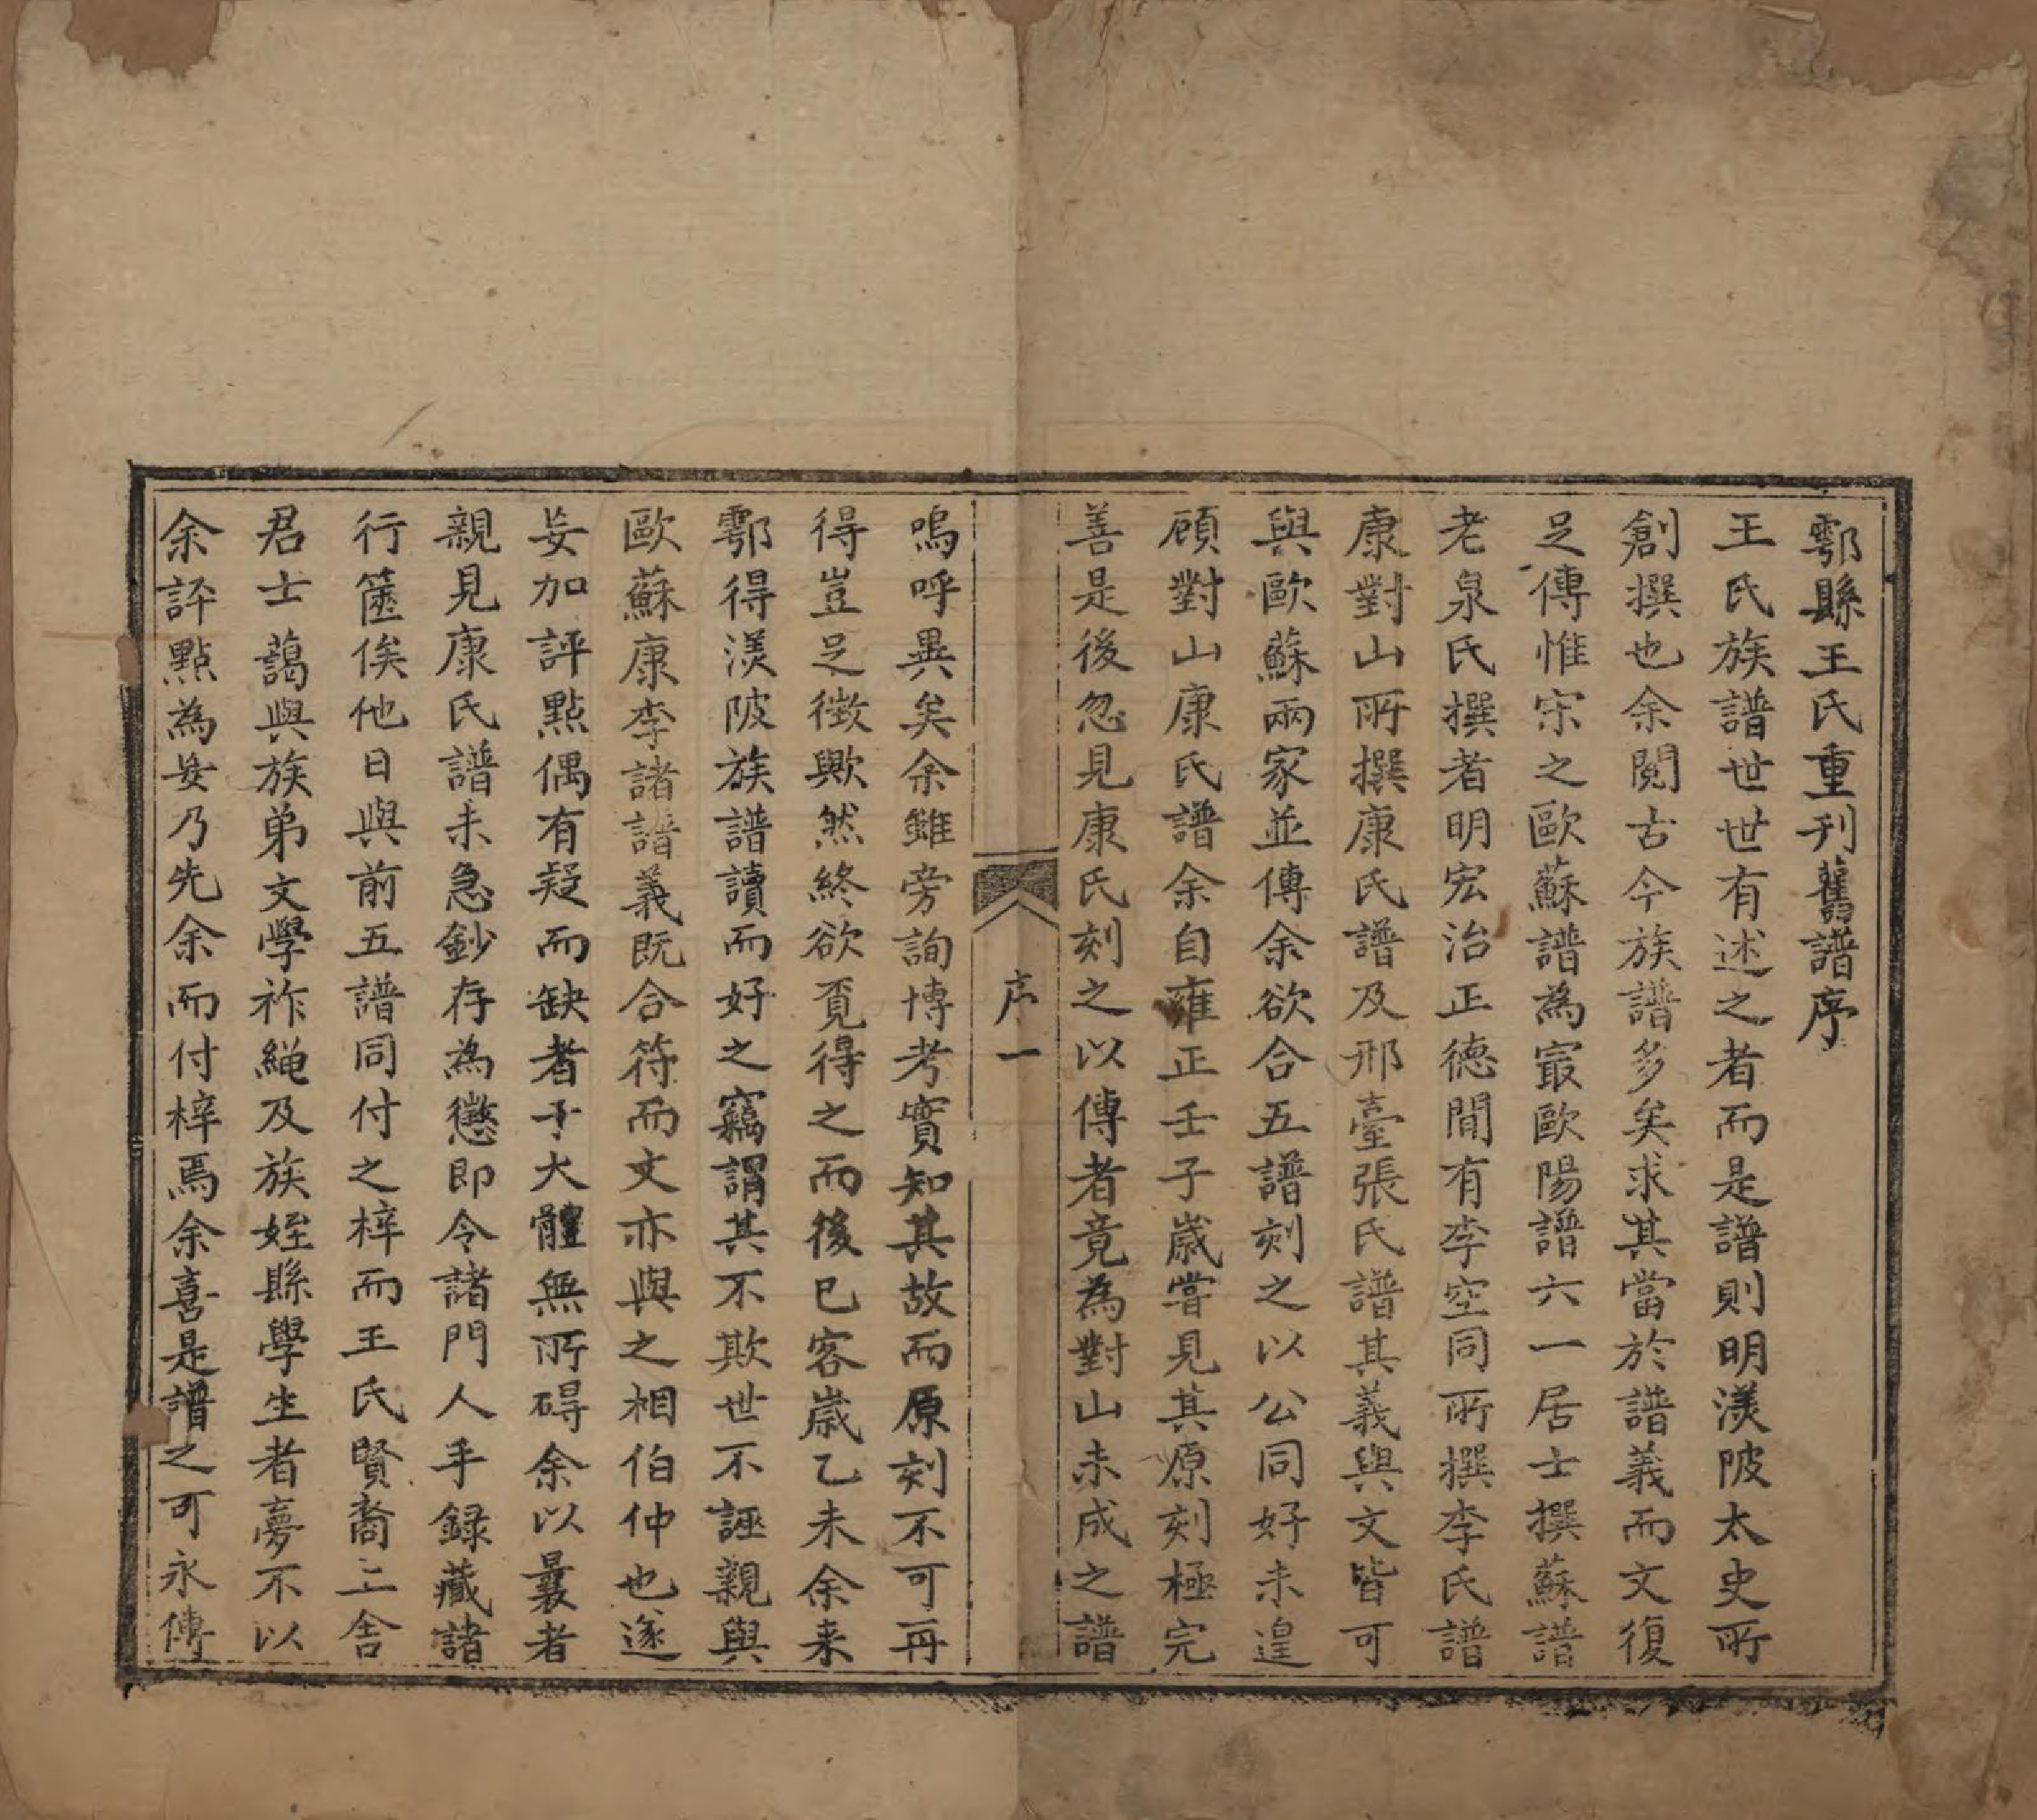 鄠縣王氏重刊舊譜序
王氏族譜世世有述之者而是譜則明渼陂太史所
創撰也余閱古今族譜多矣求其當於譜義而文復
足傳惟宋之歐蘇譜為㝡歐陽譜六一居士撰蘇譜
老泉氏撰者明宏治正德間有李空同所撰李氏譜
康對山所撰康氏譜及邢臺張氏譜其義與文皆可
與歐蘇兩家並傳余欲合五譜刻之以公同好未遑
頋對山康氏譜余自雍正壬子歲嘗見其原刻極完
善是後忽見康氏刻之以傳者竟為對山未成之譜
序一
嗚呼異矣余雖旁詢博考實知其故而原刻不可再
得豈足徵歟然終欲覔得之而後已客歲乙未余来
鄠得渼陂族譜讀而好之竊謂其不欺世不誣親與
歐蘇康李諸譜義既合符而文亦與之相伯仲也遂
妄加評點偶有疑而缺者于大體無所碍余以曩者
親見康氏譜未急鈔存為懲即令諸門人手録藏諸
行篋俟他日與前五譜同付之梓而王氏賢裔三舍
君士藹與族弟文學祚繩及族姪縣學生者夢不以
余評點為妄乃先余而付梓焉余喜是譜之可永傳